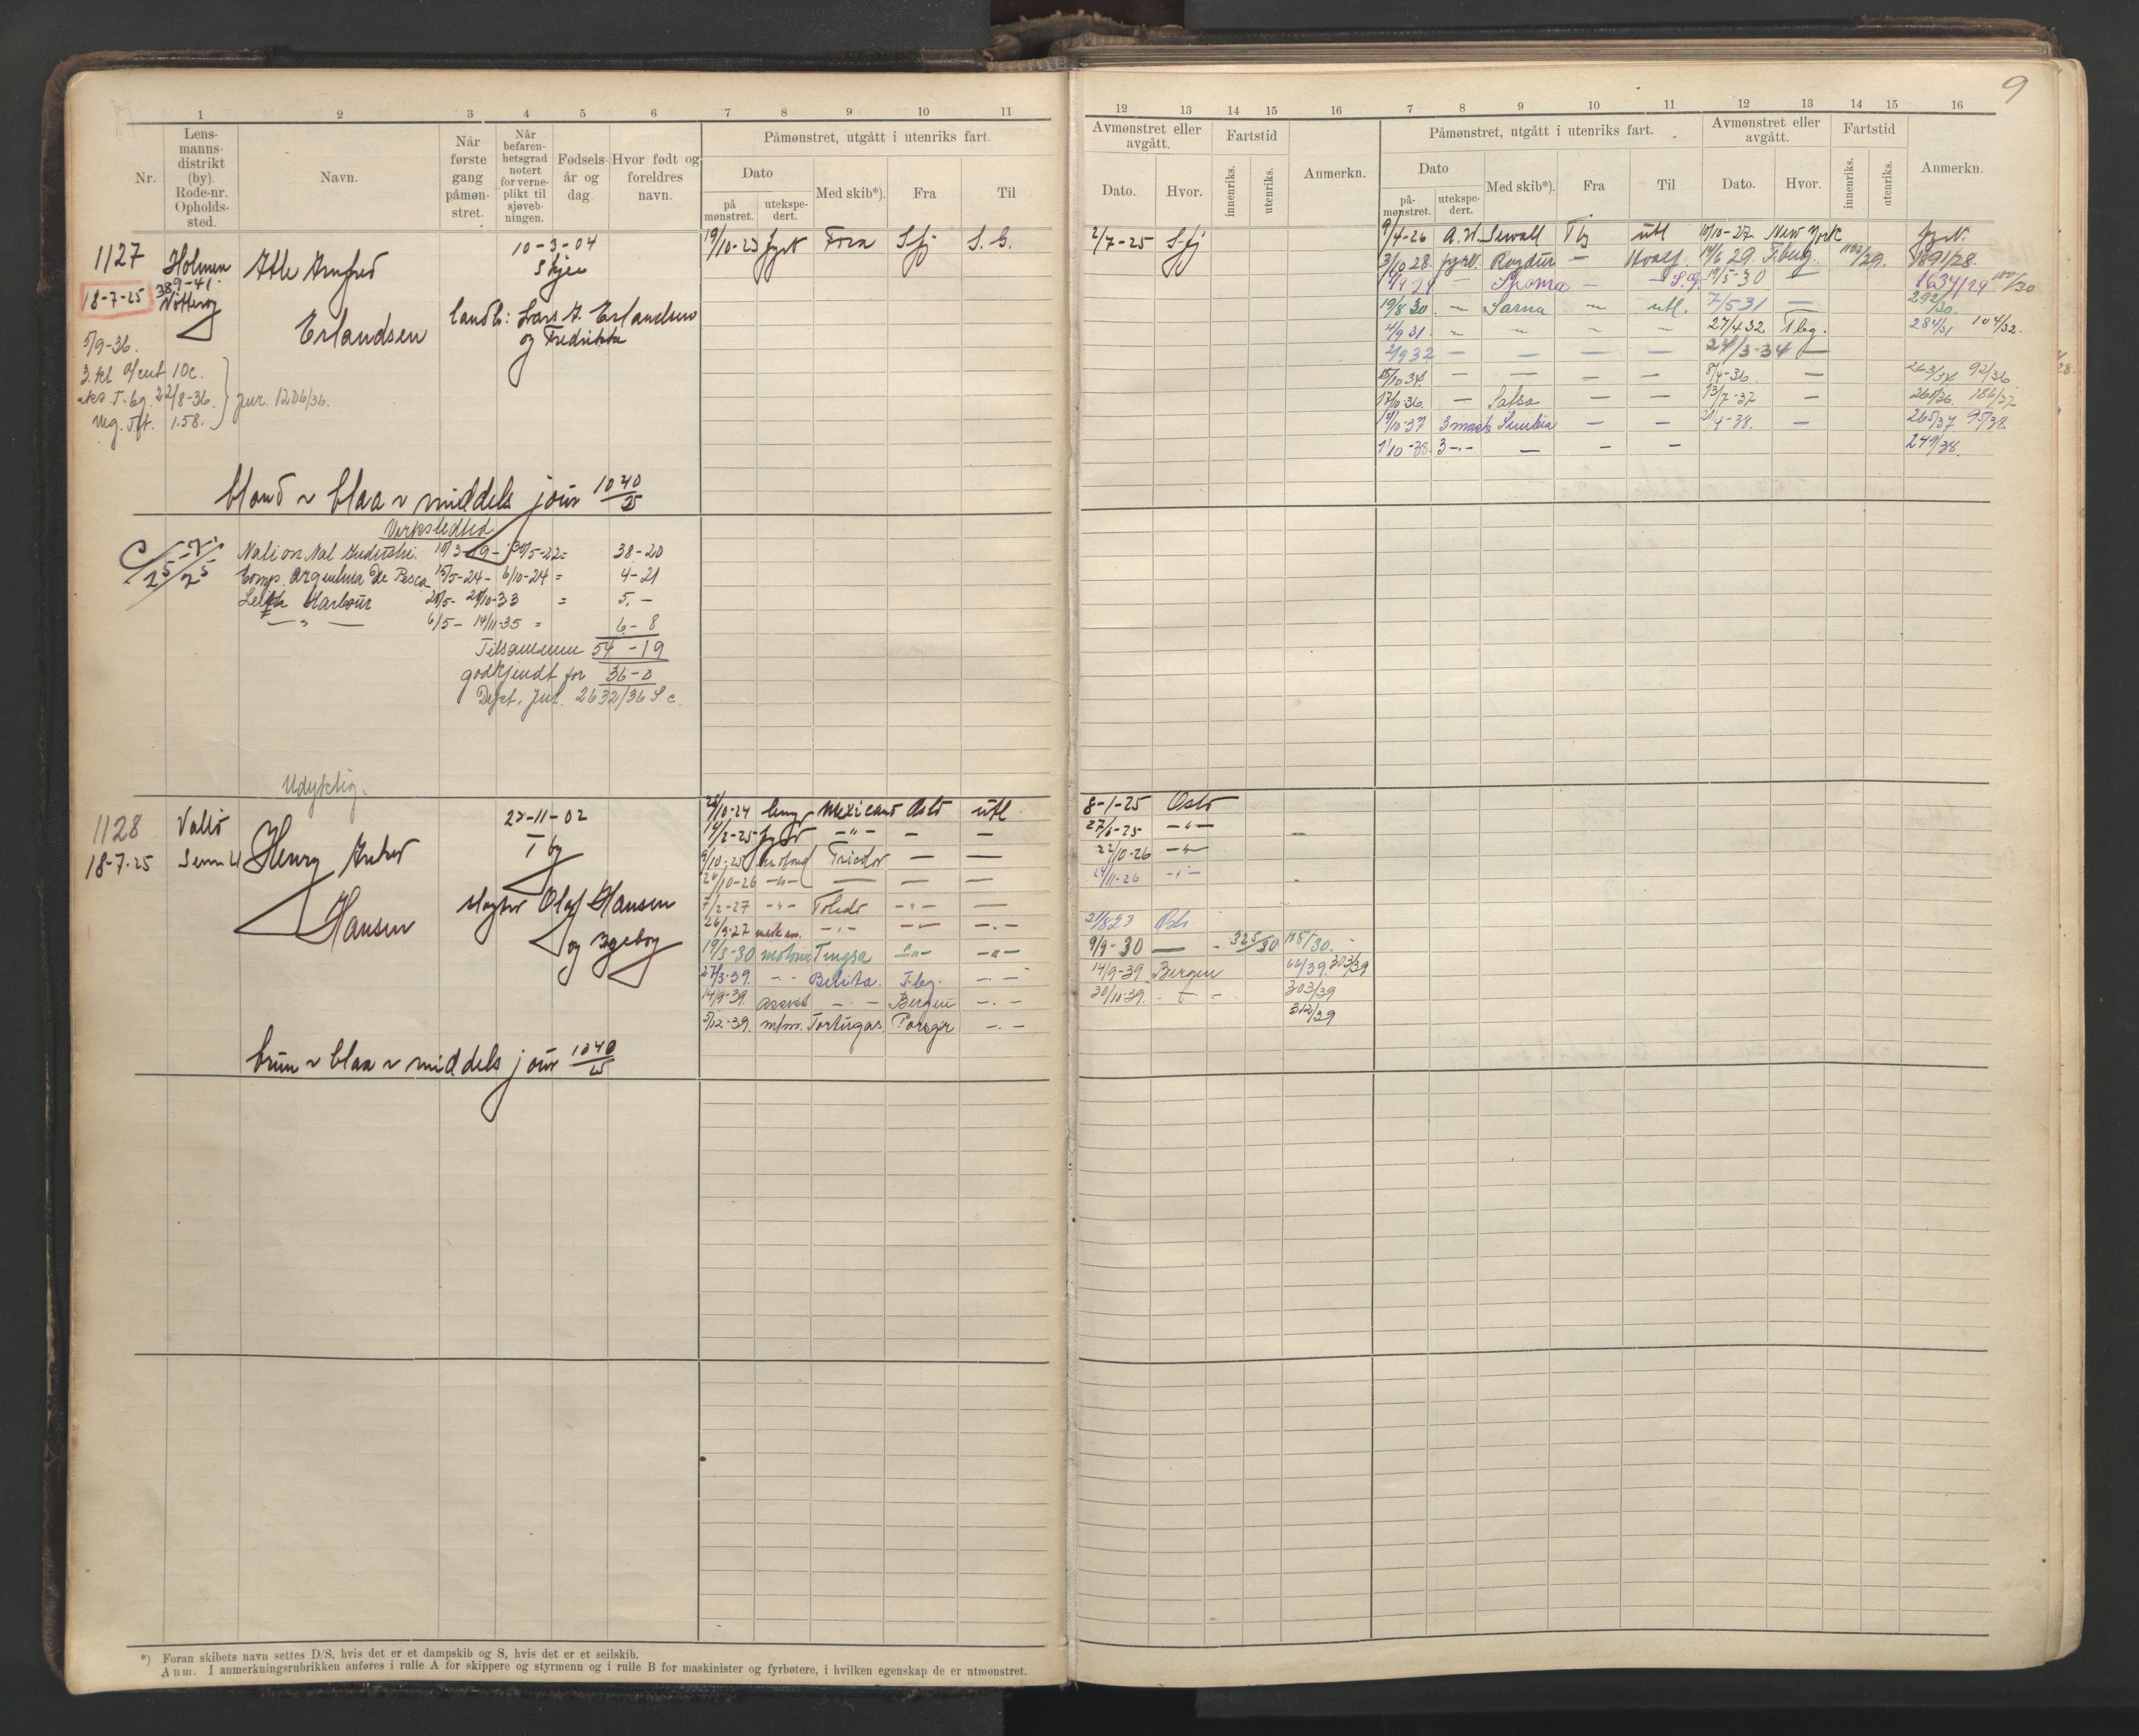 9
1 2 3 4 5 6 7 8 9 10 11
Nr.
Lens-
manns-
distrikt
(by).
Rode-nr.
Opholds-
sted.
Navn.
Når
første
gang
påmøn-
stret.
Når
befaren-
hetsgrad
notert
for verne-
plikt til
sjøveb-
ningen.
Fødsels-
år og
dag.
Hvor født og
foreldres
navn.
Påmønstret, utgått i utenriks fart.
Dato
på
mønstret.
utekspe-
dert.
Med skib*).
Fra
Til
12 13 14 15 16 7 8 9 10 11 12 13 14 15 16
Avmønstret eller
avgått.
Dato.
Hvor.
Fartstid
innenriks.
utenriks.
Anmerkn.
Påmønstret, utgått i utenriks fart.
Dato
på-
mønstret.
utekspe-
dert.
Med skib*).
Fra
Til
Avmønstret eller
avgått.
Dato.
Hvor.
Fartstid
innenriks.
utenriks.
Anmerkn.
1127 Holmen Atle Arnfred 10-3-04
Skjee
18-7-25 389-41 Nøtterøy
Erlandsen landb: Lars A. Erlandsen
og Fredrikke
5/9-36.
3.kl 10c.
T.bg. 22/8-36. jur. 1206/36.
158.
19/10-23 fyrb Fora S.fj S.G. 2/7-25 S.fj
9/4-26 A.W. Sewall Tbg utl 10/10-27 New York fyrb.
3/10 28. fyrb. Raydur — 14/6 29. T.berg. 1891/28.
Thoma — S.G. 19/5-30 — 1634/29
19/8 30 — Sarna — utl. 7/5 31 — 292/30.
4/9 31 — — — — 27/4 32 Tbg. 284/31 104/32.
2/9 32 — — — — 24/3-34 —
15/10 34. — — — — 8/4-36. — 263/34 92/36
17/10-36. — Salsa — — 13/7-37 — 260/36. 186/37
3 mask — — 21/4-38. — 265/37 95/38
1/10-38. 3 -.- — — — 249/38.
blond ~ blaa ~ middels jour 1040/25
Verkstedtid
National Industri. 38-20
Comp. Argentina De Pesca 15/5-24 - 6/10-24 = 4-21
Leith Harbour 20/5- 20/10-33 = 5.-
— " — 6/5 - 14/11-35 = 6-8
Tilsammen 54-19
godkjendt for 36-0
Dept. jur. 2632/36 S.c.
Udyktig.
1128 Vallø Henry Anker 27-11-02
Tbg
18-7-25 Sem
Hansen Olaf Hansen
og Ingeborg
28/10-24 Mexicano Oslo utl 8-1-25 Oslo
14/2-25 fyrb — " — — — 27/6-25 — " —
9/10-25 motormd Tricolor — — 22/10-26 — " —
26/10-26 — " — — — — 24/11-26 — " —
7/2-27 — " — Toledo — " — —
26/9-27 — " — — " — — . — 21/8-28 Oslo
19/3-30 motorm Tungsa — " — — " — 9/9-30 — 325/30
27/3-39. — " — Belita. T.bg. — . — 14/9-39 Bergen 66/39. 303/39
14/9-39. assist — . — Bergen — . — 30/10-39. — " — 303/39
5/12-39. m/m. Tortugas. Porsgr — . — 312/39
brun ~ blaa ~ middels jour 1040/25
*) Foran skibets navn settes D/S, hvis det er et dampskib og S, hvis det er et seilskib.
Anm. I anmerkningsrubrikken anføres i rulle A for skippere og styrmenn og i rulle B for maskinister og fyrbøtere, i hvilken egenskap de er utmønstret.